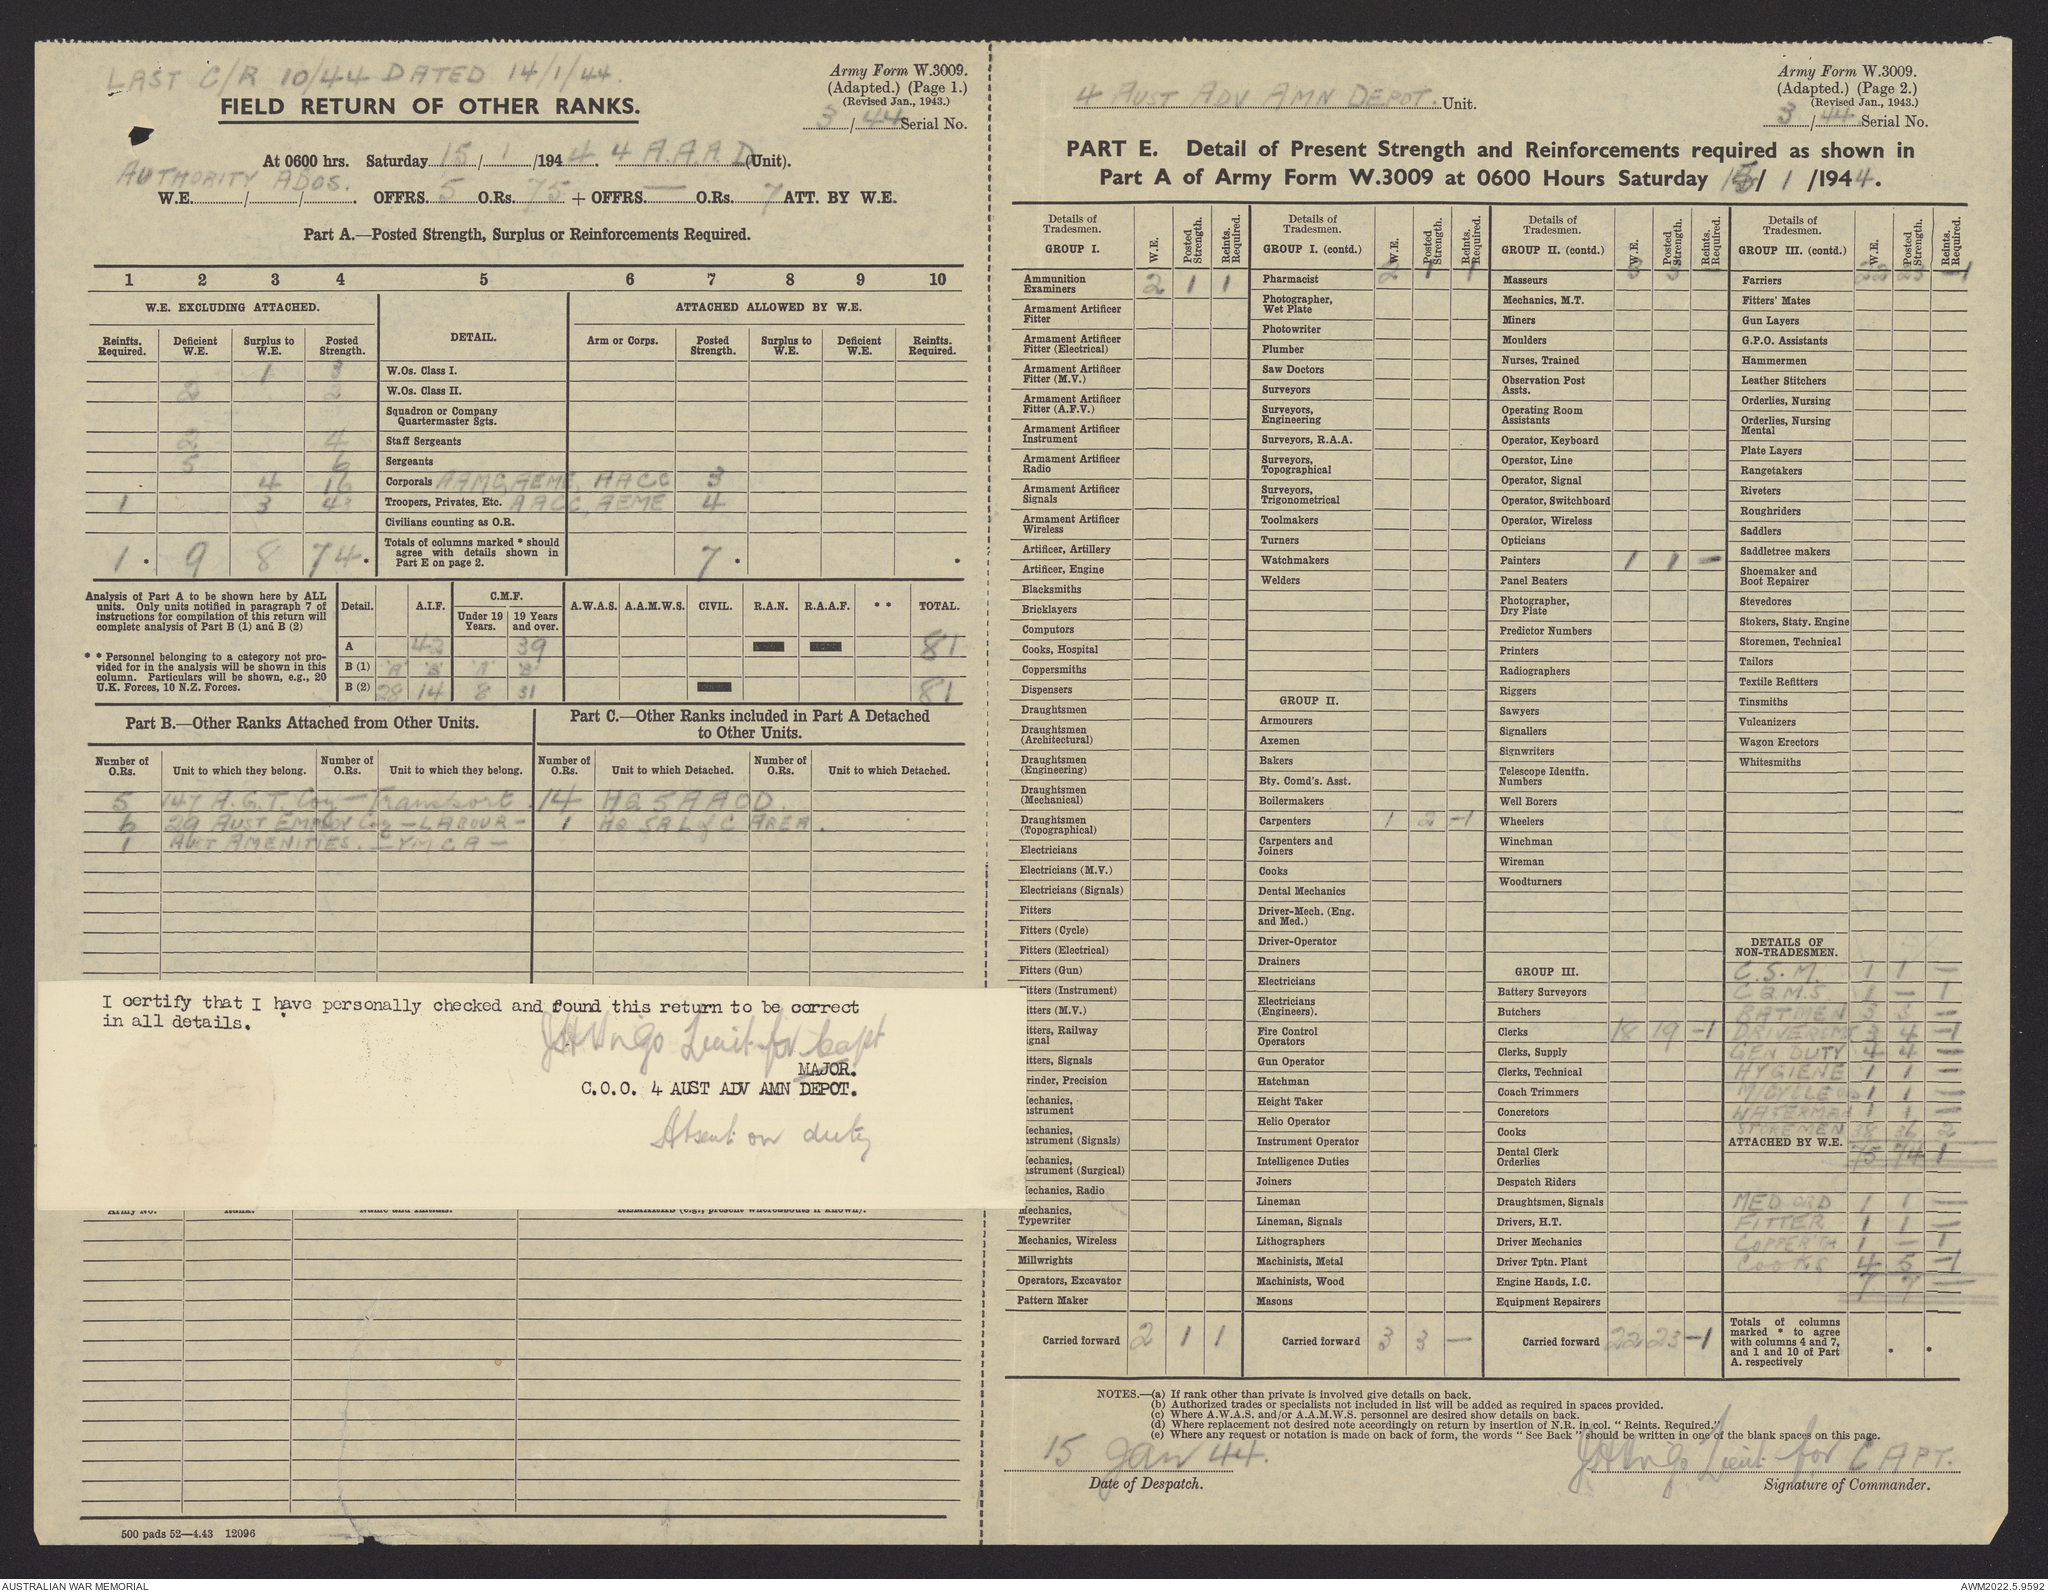 LAST C/R 10/44 DATED 14/1/44.
Army Form W.3009.
(Adapted.) (Page 1.)
(Revised Jan., 1943.)
3/44 Serial No.
FIELD RETURN OF OTHER RANKS.
At 0600 hrs. Saturday 15/1/1944. 4 A.A.A.D. (Unit).
AUTHORITY ADOS.
W.E. / / . OFFRS. 5 O.Rs. 75 + OFFRS. — O.Rs. 7 ATT. BY W.E.
Part A.—Posted Strength, Surplus or Reinforcements Required.
1 2 3 4 5 6 7 8 9 10
W.E. EXCLUDING ATTACHED. DETAIL. ATTACHED ALLOWED BY W.E.
Reinfts. Required. Deficient W.E. Surplus to W.E. Posted Strength. Arm or Corps. Posted Strength. Surplus to W.E. Deficient W.E. Reinfts. Required.
1 3 W.Os. Class I.
2 2 W.Os. Class II.
Squadron or Company Quartermaster Sgts.
2 4 Staff Sergeants
5 6 Sergeants
4 16 Corporals AAMC, AEME, AACC 3
1 3 43 Troopers, Privates, Etc. AACC, AEME 4
Civilians counting as O.R.
1 . 9 8 74 . Totals of columns marked * should agree with details shown in Part E on page 2. 7 . .
Analysis of Part A to be shown here by ALL units. Only units notified in paragraph 7 of instructions for compilation of this return will complete analysis of Part B (1) and B (2)
* * Personnel belonging to a category not provided for in the analysis will be shown in this column. Particulars will be shown, e.g., 20 U.K. Forces, 10 N.Z. Forces.
Detail. A.I.F. C.M.F. Under 19 Years. 19 Years and over. A.W.A.S. A.A.M.W.S. CIVIL. R.A.N. R.A.A.F. * * TOTAL.
A 42 39 81
B (1) 'A' 'B' 'A' 'B'
B (2) 28 14 8 31 81
Part B.—Other Ranks Attached from Other Units.
Part C.—Other Ranks included in Part A Detached to Other Units.
Number of O.Rs. Unit to which they belong. Number of O.Rs. Unit to which they belong. Number of O.Rs. Unit to which Detached. Number of O.Rs. Unit to which Detached.
5 147 A.G.T. Coy — Transport. 14 HQ 5 AAOD.
6 29 AUST EMPLOY Coy — LABOUR — 1 HQ 5A L of C AREA.
1 AUST AMENITIES. — YMCA —
I certify that I have personally checked and found this return to be correct
in all details.
Lieut for Capt
MAJOR.
C.O.O. 4 AUST ADV AMN DEPOT.
Absent on duty
Army No. Rank. Name and Initials. REMARKS (e.g., present whereabouts if known).
500 pads 52—4.43 12096
4 AUST ADV AMN DEPOT. Unit.
Army Form W.3009.
(Adapted.) (Page 2.)
(Revised Jan., 1943.)
3/44 Serial No.
PART E. Detail of Present Strength and Reinforcements required as shown in
Part A of Army Form W.3009 at 0600 Hours Saturday 15/ 1 /1944.
Details of Tradesmen. W.E. Posted Strength. Reints. Required.
GROUP I.
Ammunition Examiners 2 1 1
Armament Artificer Fitter
Armament Artificer Fitter (Electrical)
Armament Artificer Fitter (M.V.)
Armament Artificer Fitter (A.F.V.)
Armament Artificer Instrument
Armament Artificer Radio
Armament Artificer Signals
Armament Artificer Wireless
Artificer, Artillery
Artificer, Engine
Blacksmiths
Bricklayers
Computors
Cooks, Hospital
Coppersmiths
Dispensers
Draughtsmen
Draughtsmen (Architectural)
Draughtsmen (Engineering)
Draughtsmen (Mechanical)
Draughtsmen (Topographical)
Electricians
Electricians (M.V.)
Electricians (Signals)
Fitters
Fitters (Cycle)
Fitters (Electrical)
Fitters (Gun)
itters (Instrument)
itters (M.V.)
itters, Railway
ignal
itters, Signals
rinder, Precision
echanics,
nstrument
echanics,
nstrument (Signals)
echanics,
nstrument (Surgical)
echanics, Radio
Mechanics, Typewriter
Mechanics, Wireless
Millwrights
Operators, Excavator
Pattern Maker
Carried forward 2 1 1
Details of Tradesmen. W.E. Posted Strength. Reints. Required.
GROUP I. (contd.)
2 1 1
Pharmacist
Photographer, Wet Plate
Photowriter
Plumber
Saw Doctors
Surveyors
Surveyors, Engineering
Surveyors, R.A.A.
Surveyors, Topographical
Surveyors, Trigonometrical
Toolmakers
Turners
Watchmakers
Welders
GROUP II.
Armourers
Axemen
Bakers
Bty. Comd's. Asst.
Boilermakers
Carpenters 1 2 -1
Carpenters and Joiners
Cooks
Dental Mechanics
Driver-Mech. (Eng. and Med.)
Driver-Operator
Drainers
Electricians
Electricians (Engineers).
Fire Control Operators
Gun Operator
Hatchman
Height Taker
Helio Operator
Instrument Operator
Intelligence Duties
Joiners
Lineman
Lineman, Signals
Lithographers
Machinists, Metal
Machinists, Wood
Masons
Carried forward 3 3 —
Details of Tradesmen. W.E. Posted Strength. Reints. Required.
GROUP II. (contd.)
3 3
Masseurs
Mechanics, M.T.
Miners
Moulders
Nurses, Trained
Observation Post Assts.
Operating Room Assistants
Operator, Keyboard
Operator, Line
Operator, Signal
Operator, Switchboard
Operator, Wireless
Opticians
Painters 1 1 —
Panel Beaters
Photographer, Dry Plate
Predictor Numbers
Printers
Radiographers
Riggers
Sawyers
Signallers
Signwriters
Telescope Identfn. Numbers
Well Borers
Wheelers
Winchman
Wireman
Woodturners
GROUP III.
Battery Surveyors
Butchers
Clerks 18 19 -1
Clerks, Supply
Clerks, Technical
Coach Trimmers
Concretors
Cooks
Dental Clerk Orderlies
Despatch Riders
Draughtsmen, Signals
Drivers, H.T.
Driver Mechanics
Driver Tptn. Plant
Engine Hands, I.C.
Equipment Repairers
Carried forward 22 23 -1
Details of Tradesmen. W.E. Posted Strength. Reints. Required.
GROUP III. (contd.)
22 23 -1
Farriers
Fitters' Mates
Gun Layers
G.P.O. Assistants
Hammermen
Leather Stitchers
Orderlies, Nursing
Orderlies, Nursing Mental
Plate Layers
Rangetakers
Riveters
Roughriders
Saddlers
Saddletree makers
Shoemaker and Boot Repairer
Stevedores
Stokers, Staty. Engine
Storemen, Technical
Tailors
Textile Refitters
Tinsmiths
Vulcanizers
Wagon Erectors
Whitesmiths
DETAILS OF NON-TRADESMEN.
C.S.M. 1 1 —
C.Q.M.S. 1 — 1
BATMEN 3 3 —
DRIVERS MT 3 4 -1
GEN DUTY 4 4 —
HYGIENE 1 1 —
M/CYCLE 1 1 —
WATERMAN 1 1 —
STOREMEN 38 36 2
ATTACHED BY W.E.
75 74 1
MED ORD 1 1 —
FITTER 1 1 —
1 — 1
COOKS 4 5 -1
7 7 —
Totals of columns marked * to agree with columns 4 and 7, and 1 and 10 of Part A. respectively * *
NOTES.—(a) If rank other than private is involved give details on back.
(b) Authorized trades or specialists not included in list will be added as required in spaces provided.
(c) Where A.W.A.S. and/or A.A.M.W.S. personnel are desired show details on back.
(d) Where replacement not desired note accordingly on return by insertion of N.R. in col. "Reints. Required."
(e) Where any request or notation is made on back of form, the words "See Back" should be written in one of the blank spaces on this page.
15 Jan 44.
Date of Despatch.
Lieut for CAPT.
Signature of Commander.
AUSTRALIAN WAR MEMORIAL
AWM2022.5.9592